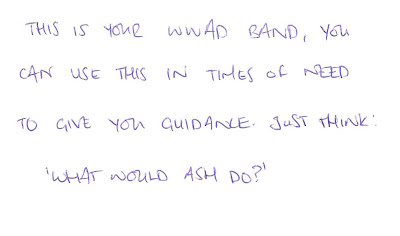 THIS IS YOUR WWAD BAND, YOU
CAN USE THIS IN TIMES OF NEED
TO GIVE YOU GUIDANCE. JUST THINK:
'WHAT WOULD ASH DO?'